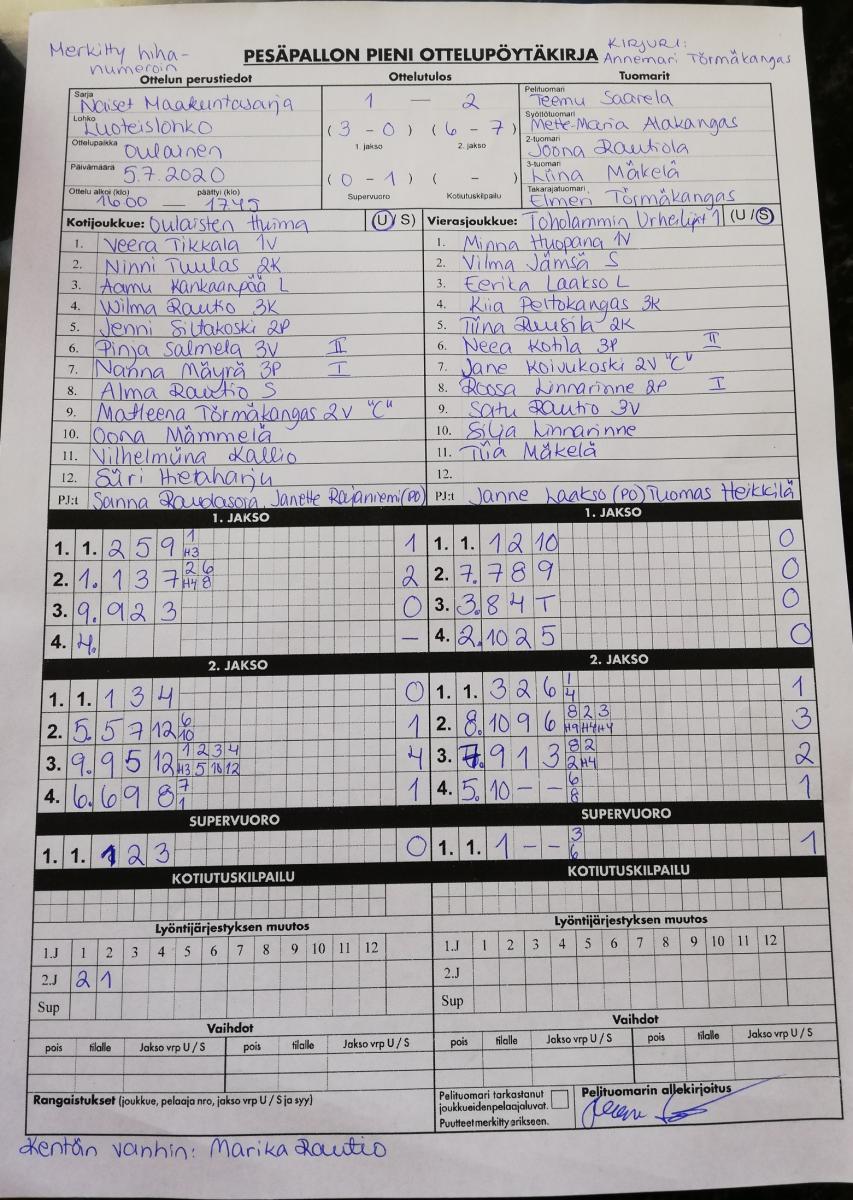 Merkitty hiha-
numeroin
PESÄPALLON PIENI OTTELUPÖYTÄKIRJA
KIRJURI:
Annemari Törmäkangas
Ottelun perustiedot Ottelutulos Tuomarit
Sarja Naiset Maakuntasarja
Lohko Luoteislohko
Ottelupaikka Oulainen
Päivämäärä 5.7.2020
Ottelu alkoi (klo) päättyi (klo)
16.00 — 17.45
1 — 2
( 3 - 0 ) ( 6 - 7 )
1. jakso 2. jakso
( 0 - 1 ) ( - )
Supervuoro Kotiutuskilpailu
Pelituomari Teemu Saarela
Syöttötuomari Mette-Maria Alakangas
2-tuomari Joona Rautiola
3-tuomari Kiina Mäkelä
Takarajatuomari Elmeri Törmäkangas
Kotijoukkue: Oulaisten Huima (U/ S)
1. Veera Tikkala 1V
2. Ninni Tuulas 2K
3. Aamu Kankaanpää L
4. Wilma Rautio 3K
5. Jenni Siltakoski 2P
6. Pinja Salmela 3V II
7. Nanna Mäyrä 3P I
8. Alma Rautio S
9. Matleena Törmäkangas 2V "C"
10. Oona Mämmelä
11. Vilhelmiina Kallio
12. Siiri Hietaharju
PJ:t Sanna Raudasoja, Janette Rajaniemi (PO)
Vierasjoukkue: Toholammin Urheilijat 1 (U /S)
1. Minna Huopana 1V
2. Vilma Jämsä S
3. Eerika Laakso L
4. Kiia Peltokangas 3K
5. Tiina Ruusila 2K
6. Neea Kotila 3P II
7. Jane Koivukoski 2V "C"
8. Roosa Linnarinne 2P I
9. Satu Rautio 3V
10. Silja Linnarinne
11. Tiia Mäkelä
12.
PJ:t Janne Laakso (PO) Tuomas Heikkilä
1. JAKSO
1. 1. 2 5 9 1 H3 1
2. 1. 1 3 7 2 6 H4 8 2
3. 9. 9 2 3 0
4. 4. –
1. JAKSO
1. 1. 1 2 10 0
2. 7. 7 8 9 0
3. 3. 8 4 T 0
4. 2. 10 2 5 0
2. JAKSO
1. 1. 1 3 4 0
2. 5. 5 7 12 6 10 1
3. 9. 9 5 12 1 2 3 4 H3 5 10 12 4
4. 6. 6 9 8 7 1 1
2. JAKSO
1. 1. 3 2 6 1 4 1
2. 8. 10 9 6 8 2 3 H9 H4 H4 3
3. 7. 9 1 3 8 2 2 H4 2
4. 5. 10 – – 6 8 1
SUPERVUORO
1. 1. 1 2 3 0
SUPERVUORO
1. 1. 1 – – 3 6 1
KOTIUTUSKILPAILU
KOTIUTUSKILPAILU
Lyöntijärjestyksen muutos
1.J 1 2 3 4 5 6 7 8 9 10 11 12
2.J 2 1
Sup
Lyöntijärjestyksen muutos
1.J 1 2 3 4 5 6 7 8 9 10 11 12
2.J
Sup
Vaihdot
pois tilalle Jakso vrp U / S pois tilalle Jakso vrp U / S
Vaihdot
pois tilalle Jakso vrp U / S pois tilalle Jakso vrp U / S
Rangaistukset (joukkue, pelaaja nro, jakso vrp U / S ja syy)
Pelituomari tarkastanut
joukkueidenpelaajaluvat.
Puutteet merkitty erikseen.
Pelituomarin allekirjoitus
Kentän vanhin: Marika Rautio